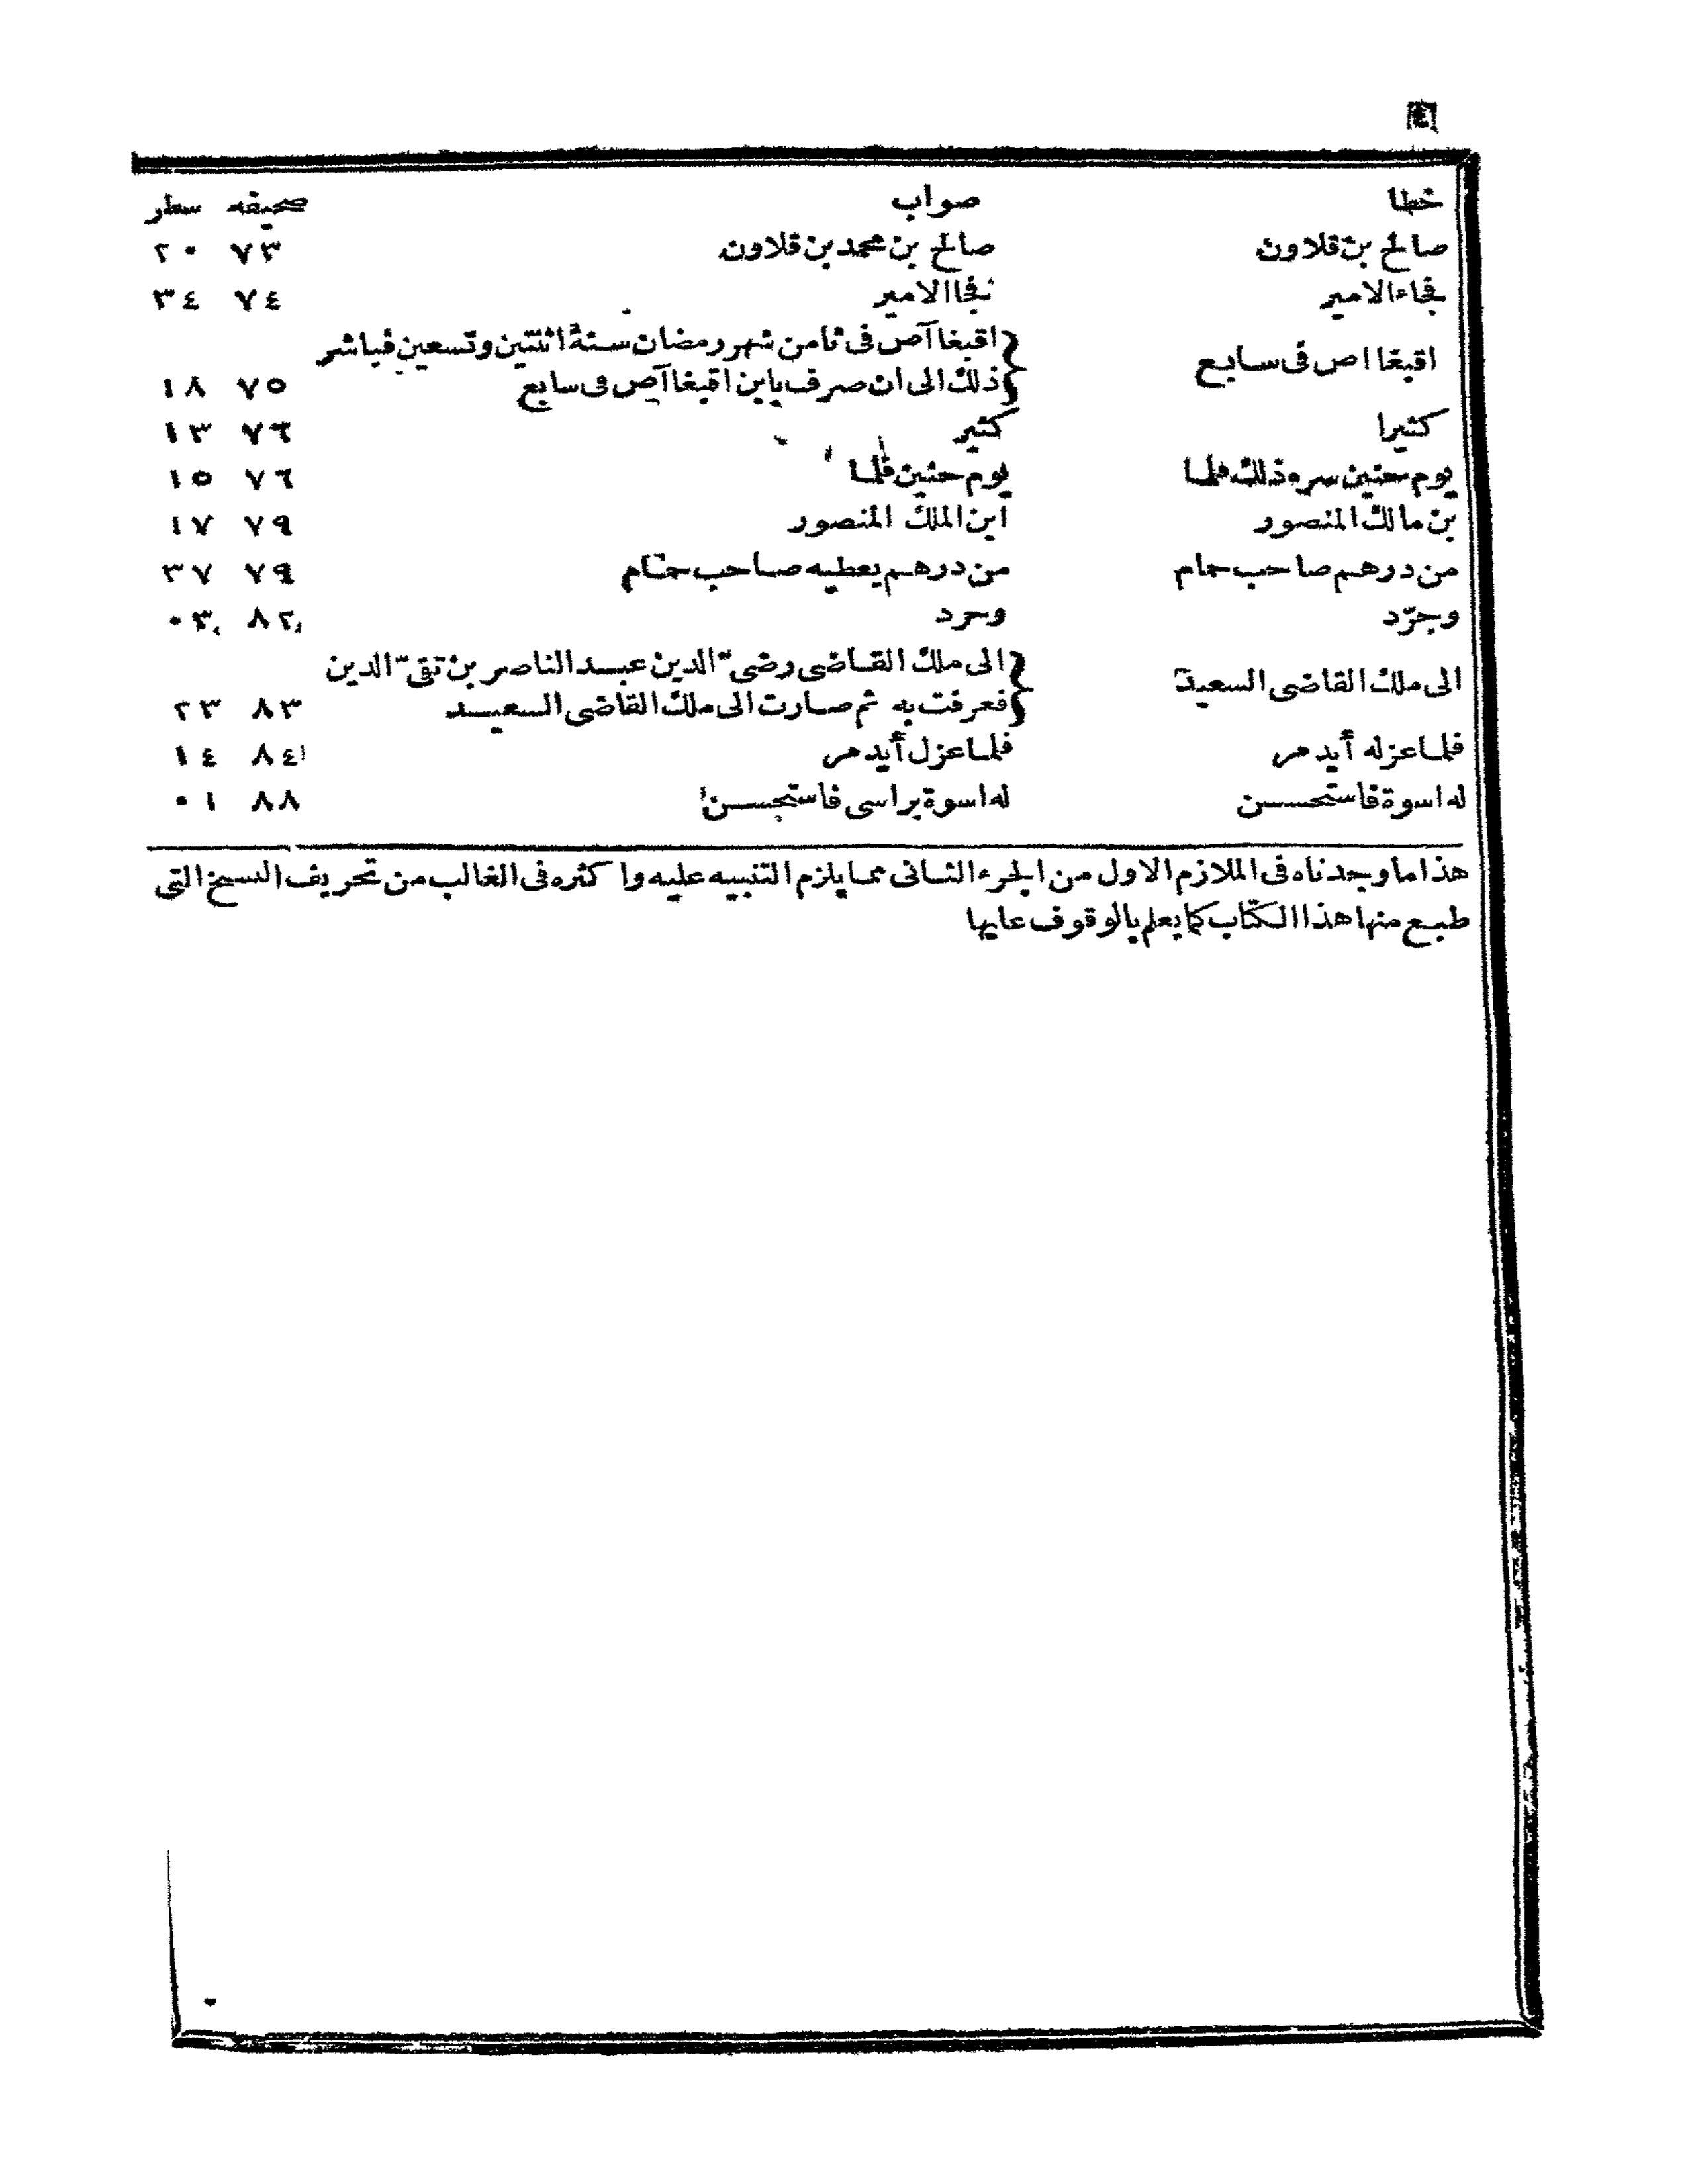 ٤
خطا صواب صحيفه سطر
صالح بن قلاون صالح بن محمد بن قلاون ٧٣ ٢٠
فجاء الامير فجا الامير ٧٤ ٣٤
اقبغا اص فى سابع اقبغا آص فى ثامن شهر رمضان سنة اثنتين وتسعين فباشر
ذلك الى ان صرف بابن اقبغا آص فى سابع ٧٥ ١٨
كثيرا كثير ٧٦ ١٣
يوم حنين سره ذلك فلما يوم حنين فلما ٧٦ ١٥
بن مالك المنصور ابن الملك المنصور ٧٩ ١٧
من درهم صاحب حمام من درهم يعطيه صاحب حمام ٧٩ ٣٧
وجرّد وحرد ٨٢ ٠٣
الى ملك القاضى السعيد الى ملك القاضى رضىّ الدين عبد الناصر بن تقىّ الدين
فعرفت به ثم صارت الى ملك القاضى السعيد ٨٣ ٢٣
فلما عزله أيدمر فلما عزل أيدمر ٨٤ ١٤
له اسوة فاستحسن له اسوة براسى فاستحسن ٨٨ ٠١
هذا ما وجدناه فى الملازم الاول من الجزء الثانى مما يلزم التنبيه عليه واكثره فى الغالب من تحريف النسخ التى
طبع منها هذا الكتاب كما يعلم بالوقوف عليها